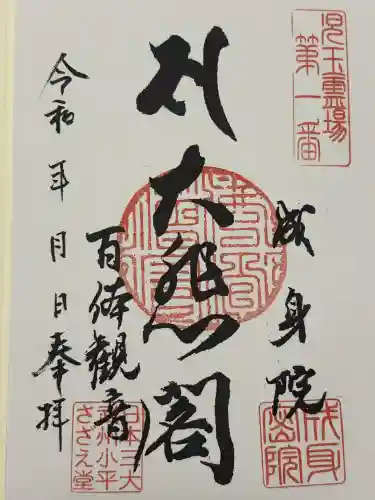 児玉霊場
第一番
成身院
大悲閣
百体観音
令和 年 月 日 奉拝
日本三大
武州小平
さざえ堂
成身
密院